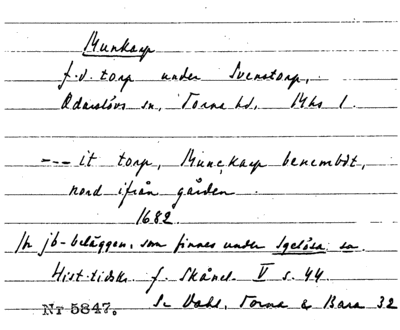 Munkarp
f.d. torp under Svenstorp,
Odarslövs sn, Torna hd, Mhs l.
--- it torp, Munckarp benembdt,
nord ifrån gården.
1682
för jb-beläggen, som finnes under Igelösa sn
Hist. tidskr. f. Skånel. V s. 44
Se Dahl, Torna & Bara 32
Nr 5847.